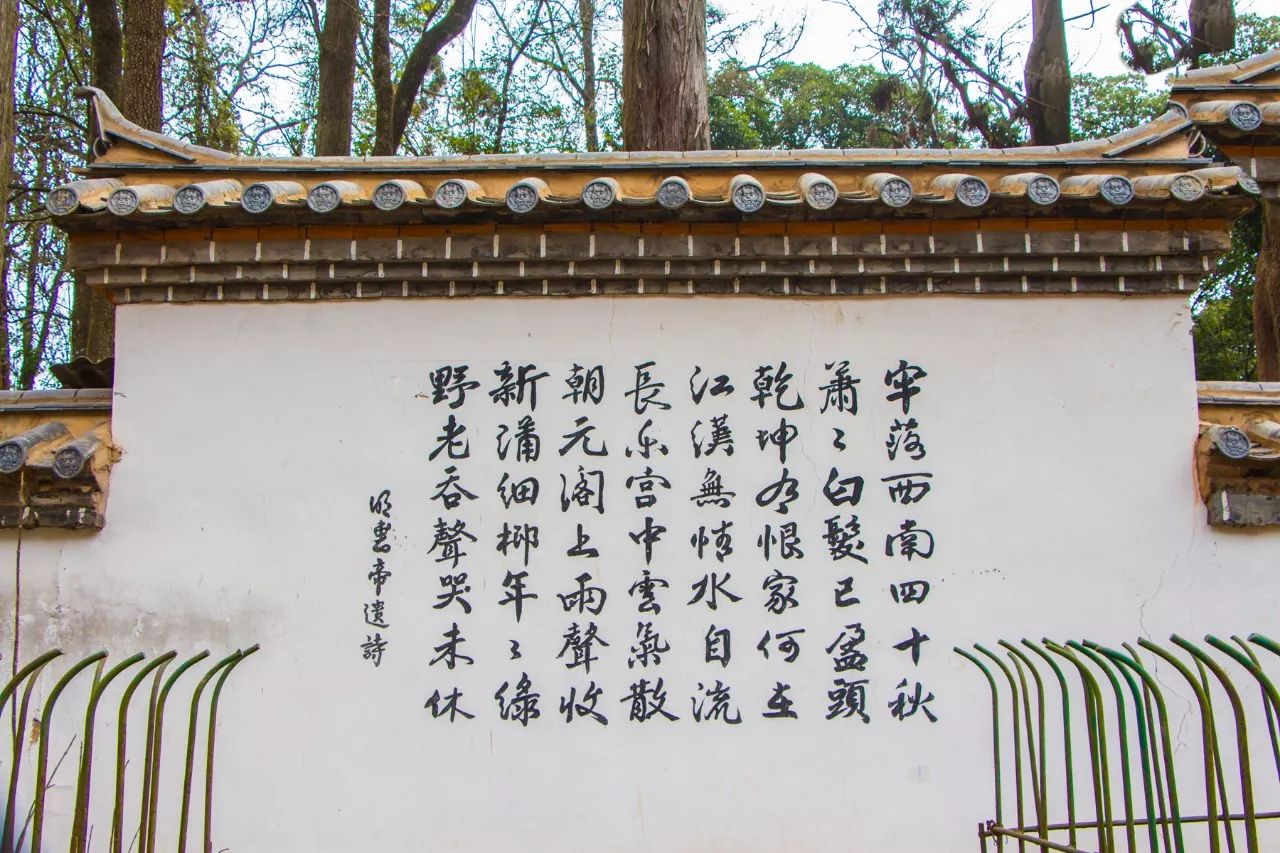 牢落西南四十秋
蕭〻白髮已盈頭
乾坤有恨家何在
江漢無情水自流
長乐宮中雲氣散
朝元阁上雨聲收
新蒲细柳年〻綠
野老吞聲哭未休
明惠帝遺詩